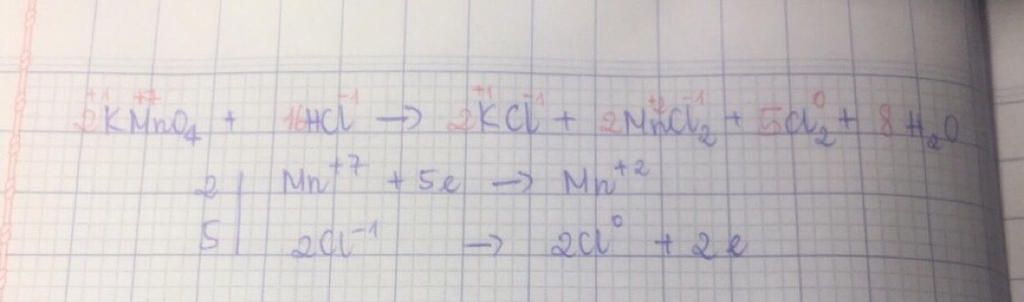 2K⁺¹Mn⁺⁷O₄ + 16HCl⁻¹ → 2K⁺¹Cl⁻¹ + 2Mn⁺²Cl₂⁻¹ + 5Cl₂⁰ + 8H₂O
2 | Mn⁺⁷ + 5e → Mn⁺²
5 | 2Cl⁻¹ → 2Cl⁰ + 2e